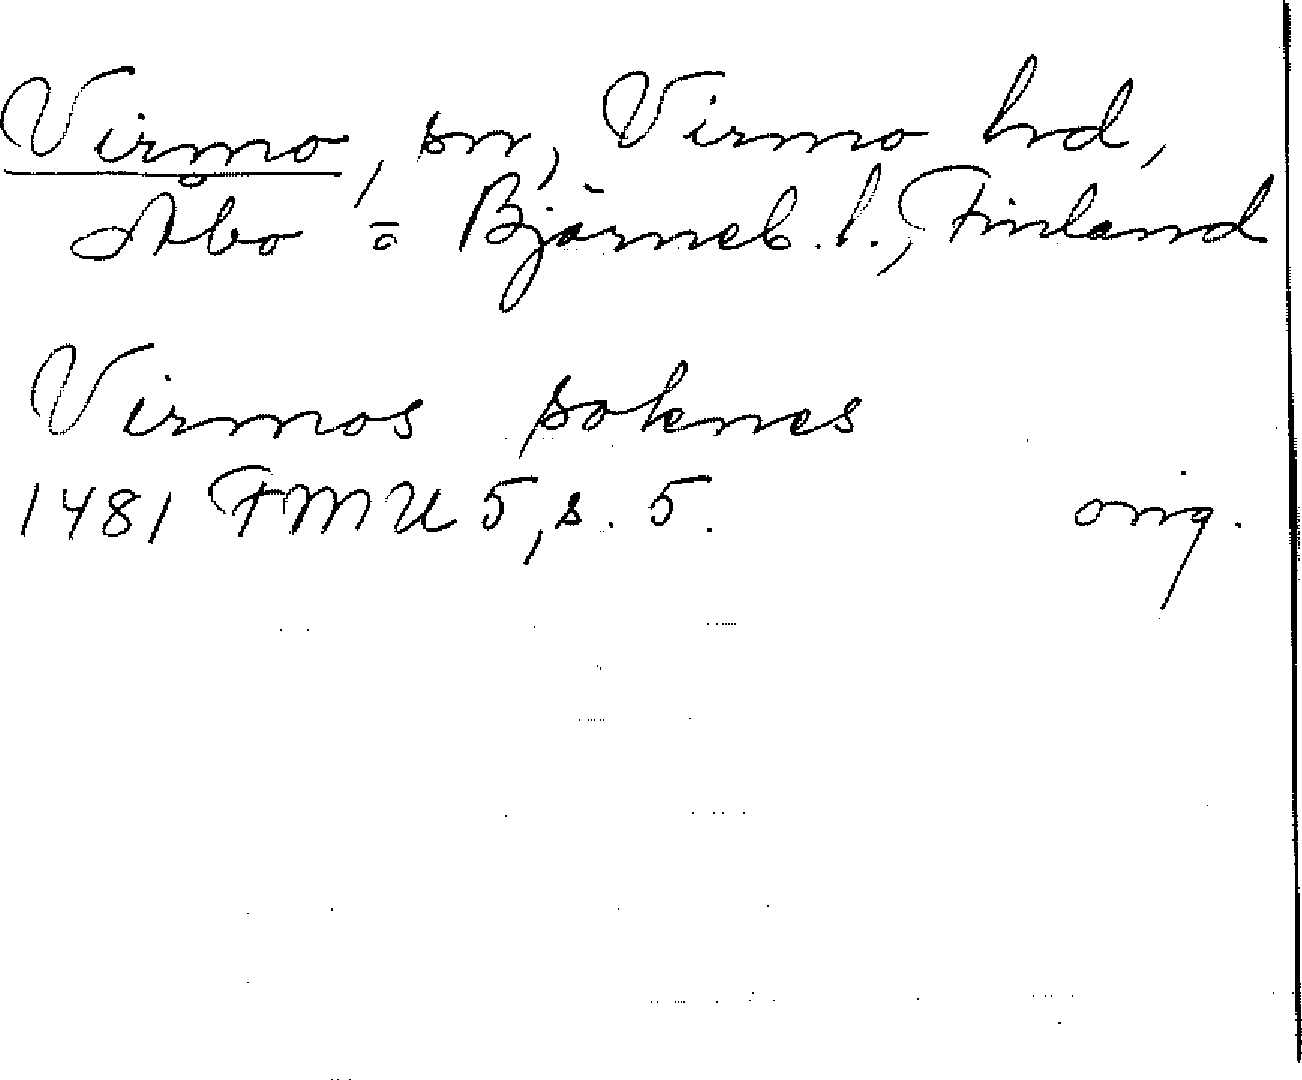 Virmo, sn, Virmo hrd,
Åbo o Björneb. l., Finland
Virmos soknes
1481 FMU 5, s. 5. orig.